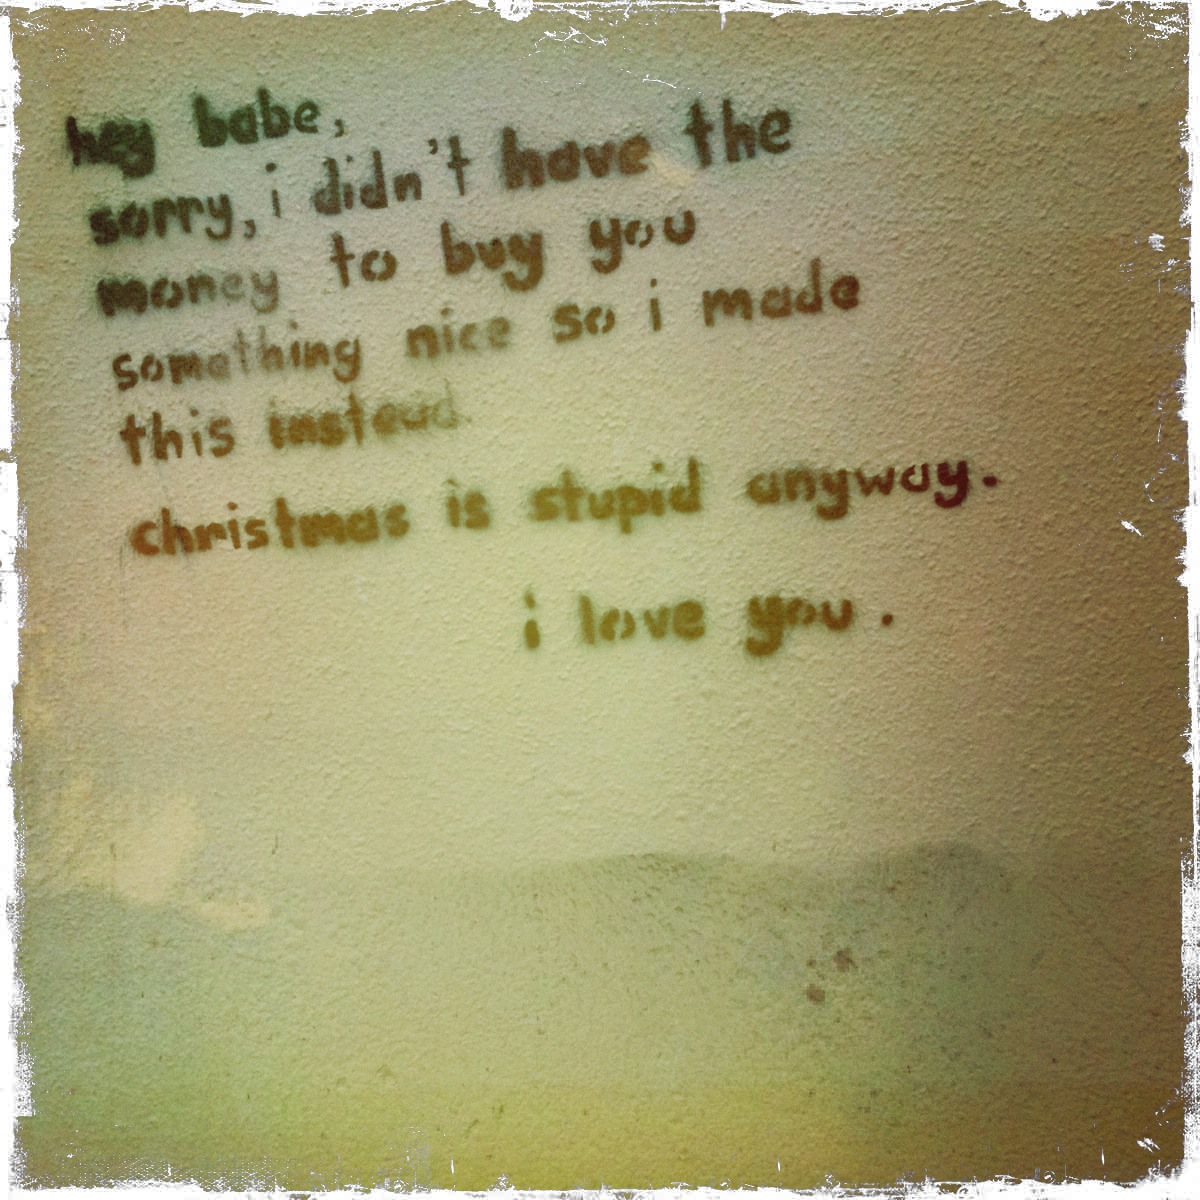 hey babe,
sorry, i didn't have the
money to buy you
something nice so i made
this instead.
christmas is stupid anyway.
i love you.